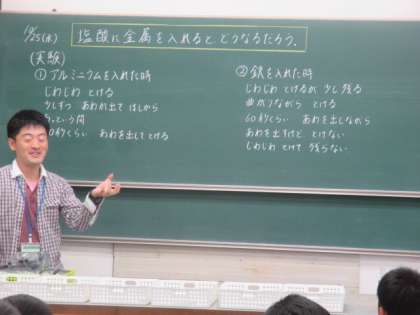 10/25(水)
塩酸に金属を入れるとどうなるだろう。
(実験)
①アルミニウムを入れた時
じわじわ とける
少しずつ あわが出て はしから
という間
60秒くらい あわを出してとける
②鉄を入れた時
じわじわ とけるが 少し残る
曲がりながら とける
60秒くらい あわを出しながら
あわを出すけど とけない
じわじわ とけて 残らない